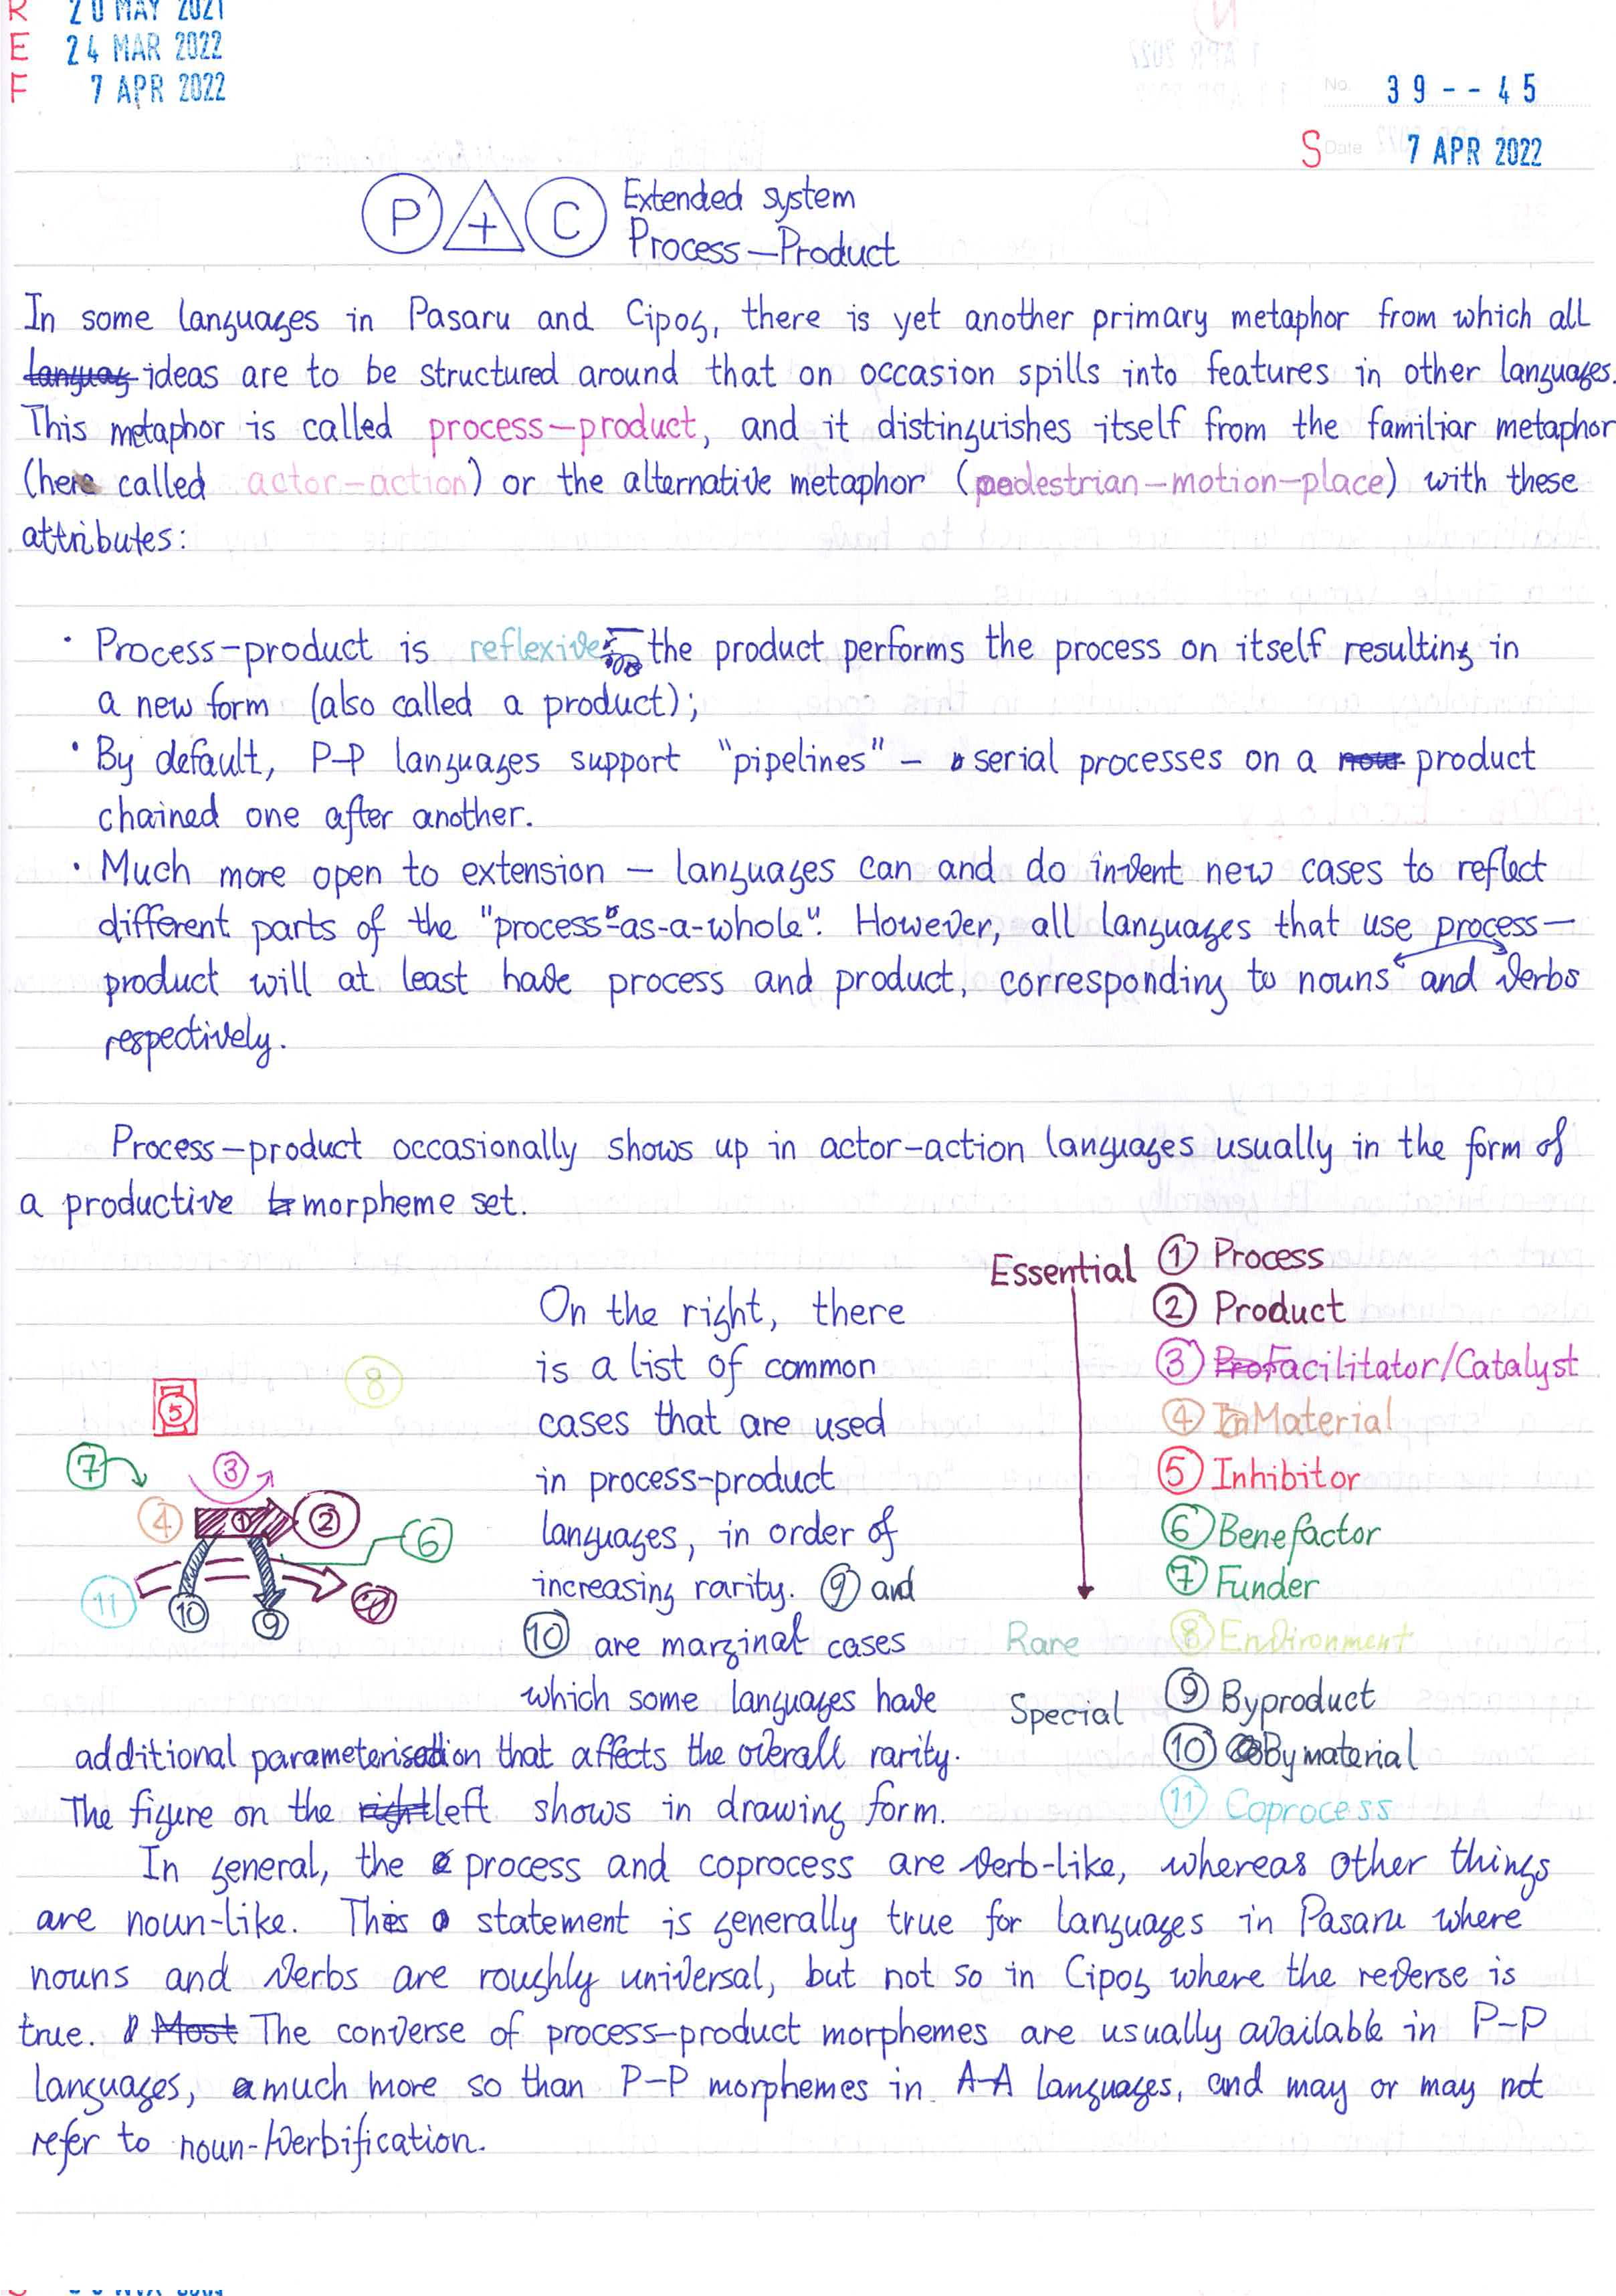 R 20 MAY 2021
E 24 MAR 2022
F 7 APR 2022
No. 39--45
S Date 7 APR 2022
P + C Extended system
Process—Product
In some languages in Pasaru and Cipog, there is yet another primary metaphor from which all
ideas are to be structured around that on occasion spills into features in other languages.
This metaphor is called process—product, and it distinguishes itself from the familiar metaphor
(here called actor—action) or the alternative metaphor (pedestrian—motion—place) with these
attributes:
· Process-product is reflexive — the product performs the process on itself resulting in
a new form (also called a product);
· By default, P-P languages support "pipelines" – serial processes on a product
chained one after another.
· Much more open to extension – languages can and do invent new cases to reflect
different parts of the "process-as-a-whole". However, all languages that use process—
product will at least have process and product, corresponding to nouns and verbs
respectively.
Process—product occasionally shows up in actor-action languages usually in the form of
a productive morpheme set.
Essential
① Process
② Product
③ Facilitator/Catalyst
④ Material
⑤ Inhibitor
⑥ Benefactor
⑦ Funder
Rare ⑧ Environment
Special ⑨ Byproduct
⑩ Bymaterial
⑪ Coprocess
⑤ ⑧
⑦ ③
④ ① ② ⑥
⑪ ⑩ ⑨
On the right, there
is a list of common
cases that are used
in process-product
languages, in order of
increasing rarity. ⑨ and
⑩ are marginal cases
which some languages have
additional parameterisation that affects the overall rarity.
The figure on the left shows in drawing form.
In general, the process and coprocess are verb-like, whereas other things
are noun-like. This statement is generally true for languages in Pasaru where
nouns and verbs are roughly universal, but not so in Cipog where the reverse is
true. The converse of process—product morphemes are usually available in P-P
languages, much more so than P-P morphemes in A-A languages, and may or may not
refer to noun-/verbification.